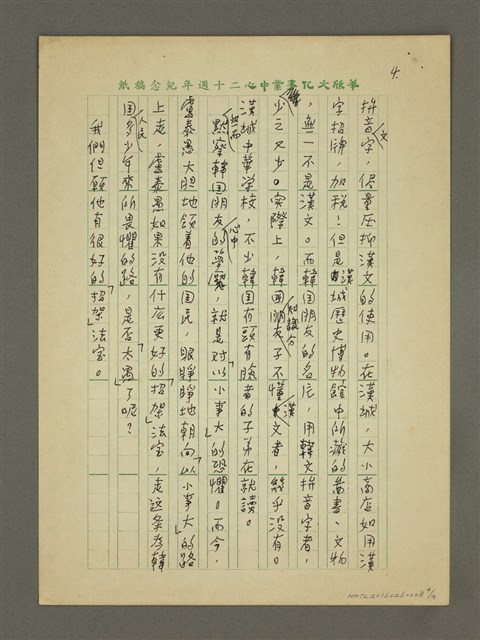 4.
華欣文化事業中心二十週年紀念稿紙
拼音文字,儘量压抑漢文的使用。在漢城,大小商店如用漢
字招牌,加税!但是漢城歷史博物館中所藏的舊書、文物
,無一不是漢文。而韓国朋友的名片,用韓文拼音字者,
少之又少。實際上,韓国知識分子不懂漢文者,幾乎没有。
漢城中華学校,不少韓国有頭有臉者的子弟在就讀。
點察韓国朋友心中的夢魘,就是对「以小事大」的恐懼。而今,
盧泰愚大胆地領着他的国民,眼睜睜地朝向「以小事大」的路
上走,盧泰愚如果没有什麽更好的「招架」法宝,走这条為韓
国人民多少年來的所畏懼的路,是否太「愚」了呢?
我們但願他有很好的「招架」法宝。
NMTL20160260228 4/4